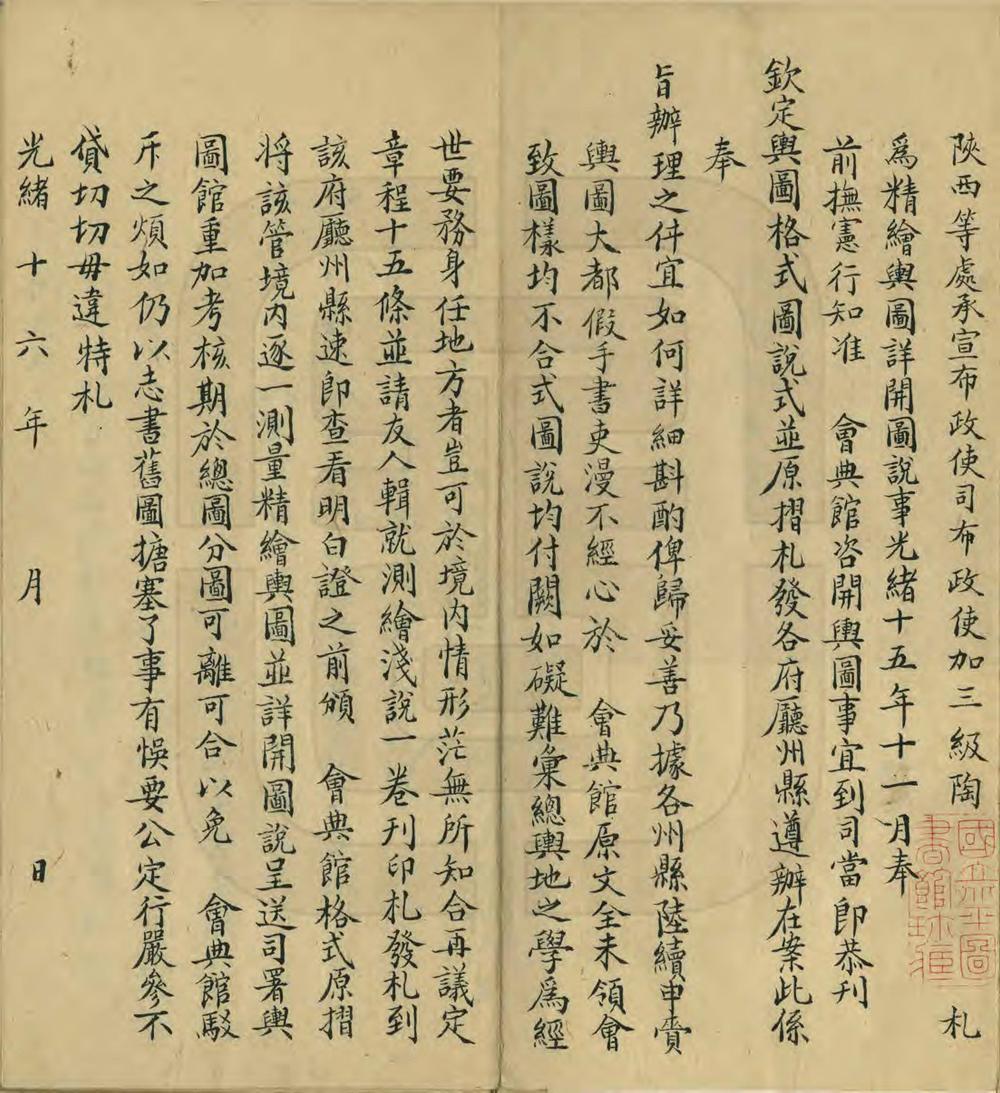 陝西等處承宣布政使司布政使加三級陶 札
爲精繪輿圖詳開圖說事光緒十五年十一月奉
前撫憲行知准 會典館咨開輿圖事宜到司當即恭刊
欽定輿圖格式圖說式並原摺札發各府廳州縣遵辦在案此係
奉
旨辦理之件宜如何詳細斟酌俾歸妥善乃據各州縣陸續申賫
輿圖大都假手書吏漫不經心於 會典館原文全未領會
致圖樣均不合式圖說均付闕如礙難彙總輿地之學爲經
世要務身任地方者豈可於境內情形茫無所知合再議定
章程十五條並請友人輯就測繪淺說一卷刊印札發札到
該府廳州縣速即查看明白證之前頒 會典館格式原摺
將該管境內逐一測量精繪輿圖並詳開圖說呈送司署輿
圖館重加考核期於總圖分圖可離可合以免 會典館駁
斥之煩如仍以志書舊圖搪塞了事有悞要公定行嚴參不
貸切切毋違特札
光緒十六年 月 日
國立北平圖書館珍藏